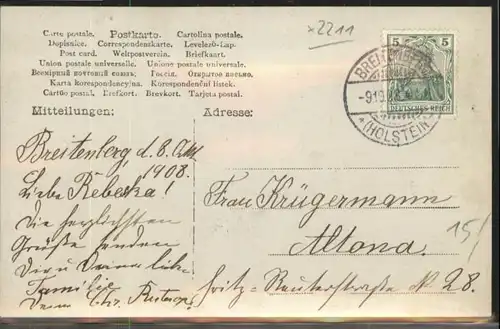 Carte postale. Postkarto. Cartolina postale.
Dopisnice. Correspondenzkarte. Levelező-Lap.
Post card. Weltpostverein. Briefkaart.
Union postale universelle. Unione postale universale.
Всемірный почтовый союзъ. Россія. Открытое письмо.
Karta korespondencyjna. Korespondenční listek.
Cartão postal. Brefkort. Brevkort. Tarjeta postal.
x2211
5 5
DEUTSCHES REICH
(HOLSTEIN)
Mitteilungen:
Adresse:
Breitenberg d. 8. Okt.
1908.
Liebe Rebecka!
Die herzlichsten
Grüße senden
Dir u. Deine liebe
Familie
Frau Krügermann
Altona.
Fritz-Reuterstraße N 28.
15/